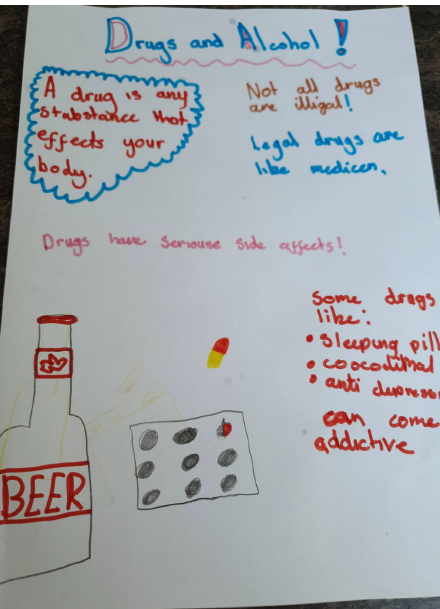 Drugs and Alcohol!
A drug is any
stubstance that
effects your
body.
Not all drugs
are illigal!
Legal drugs are
like medicen.
Drugs have seriouse side affects!
Some drugs
like:
• sleeping pill
• cocodimal
• anti depress
can come
addictive
BEER